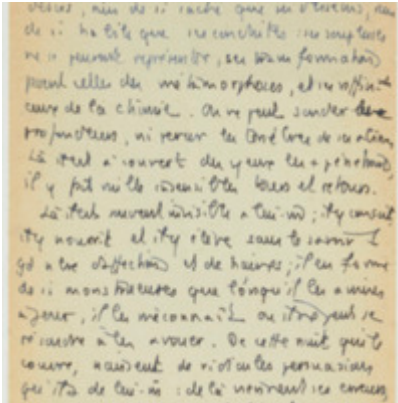 désirs, rien de si caché que ses desseins, rien
de si habile que ses conduites ; ses souplesses
ne se peuvent représenter, ses transformations
passent celles des métamorphoses, et ses raffin-ts
ceux de la chimie. On ne peut sonder la
profondeur, ni percer les ténèbres de ses abîmes.
Là il est à couvert des yeux les + pénétrants,
il y fait mille insensibles tours et retours.
Là il est souvent invisible à lui-m ; il y conçoit
il y nourrit et il y élève sans le savoir 1
gd nbre d'affections et de haines ; il en forme
de si monstrueuses que lorsqu'il les a mises
à jour, il les méconnaît ou il ne peut se
résoudre à les avouer. De cette nuit qui le
couvre, naissent de ridicules persuasions
qu'il a de lui-m : de là viennent ses erreurs,